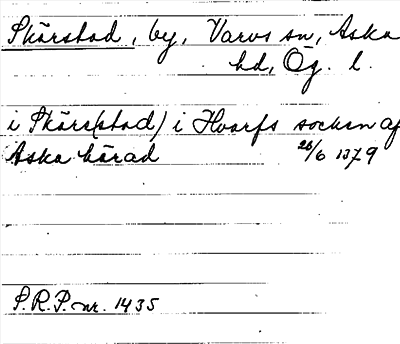 Skärstad, by, Varvs sn, Aska
hd, Ög. l.
i Skärs(stad) i Hvarfs socken af
Aska härad 26/6 1379
S.R.P. nr. 1435